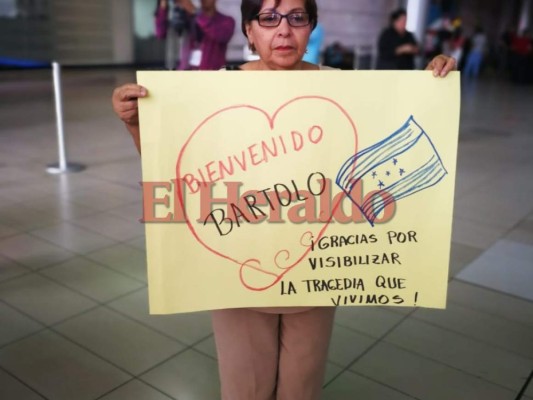 BIENVENIDO
BARTOLO
El Heraldo
¡GRACIAS POR
VISIBILIZAR
LA TRAGEDIA QUE
VIVIMOS!